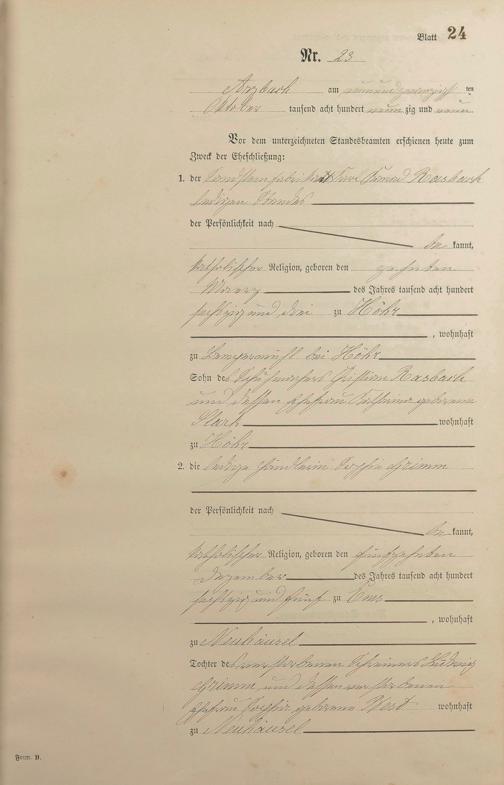 Blatt 24
Nr. 23
Arzbach am neunundzwanzigsten
Oktober tausend acht hundert neunzig und neun
Vor dem unterzeichneten Standesbeamten erschienen heute zum
Zweck der Eheschließung:
1. der Rasbach
ledigen Standes
der Persönlichkeit nach
be kannt,
katholischer Religion, geboren den zehnten
März des Jahres tausend acht hundert
sechzig und drei zu Höhr
, wohnhaft
zu bei Höhr
Sohn des Christian Rasbach
und dessen Ehefrau geborene
Stark wohnhaft
zu Höhr
2. die ledige Händlerin Sophie Grimm
der Persönlichkeit nach
be kannt,
katholischer Religion, geboren den fünfzehnten
Dezember des Jahres tausend acht hundert
sechzig und fünf zu Ems
, wohnhaft
zu Neuhäusel
Tochter des verstorbenen Schreiners Ludwig
Grimm und dessen verstorbenen
Ehefrau Sophie geborene wohnhaft
zu Neuhäusel
Form. B.